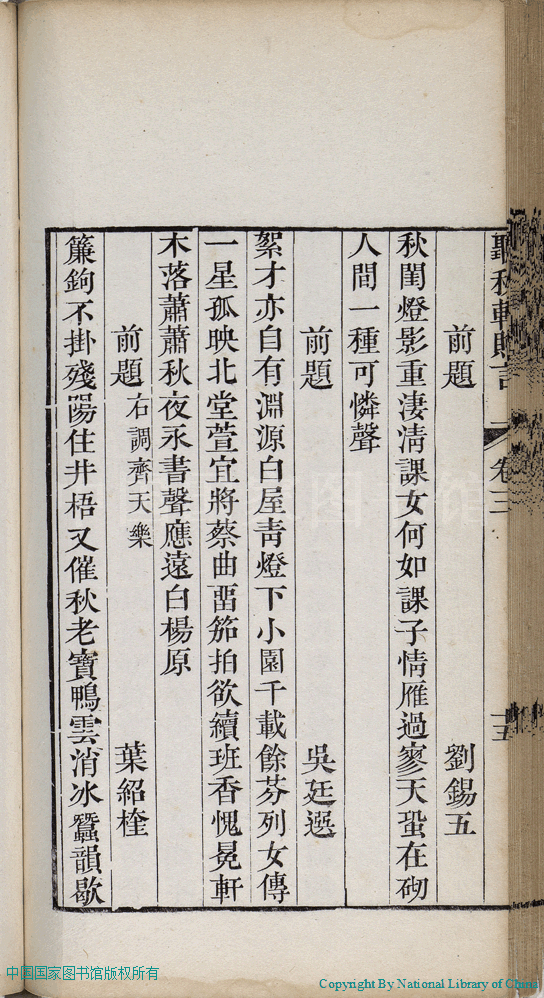 聽秋軒贈言 卷三 十五
前題 劉錫五
秋閨燈影重淒淸課女何如課子情雁過寥天蛩在砌
人間一種可憐聲
前題 吳廷選
絮才亦自有淵源白屋靑燈下小園千載餘芬列女傳
一星孤映北堂萱宜將蔡曲畱笳拍欲續班香愧冕軒
木落蕭蕭秋夜永書聲應遠白楊原
前題 右調齊天樂 葉紹楏
簾鉤不掛殘陽住井梧又催秋老寶鴨雲消冰蠶韻歇
中国国家图书馆版权所有
Copyright By National Library of China